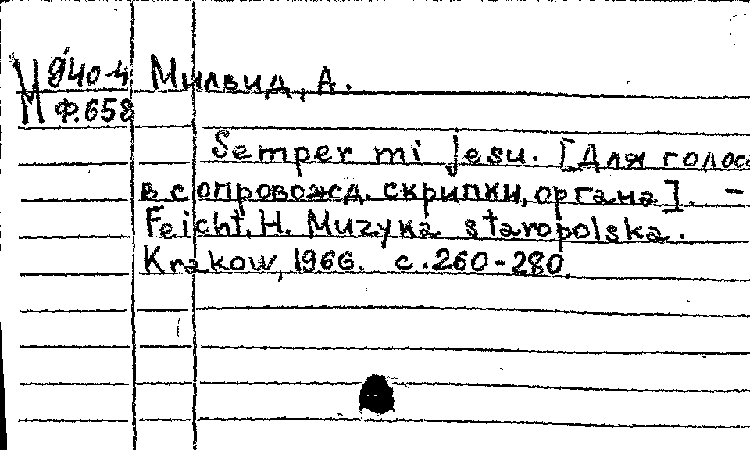 М 940-4 Милвид, А.
М Ф.658
Semper mi Jesu. [Для голоса
в сопровожд. скрипки, органа]. –
Feicht, H. Muzyka staropolska.
Krakow, 1966. с.260-280.